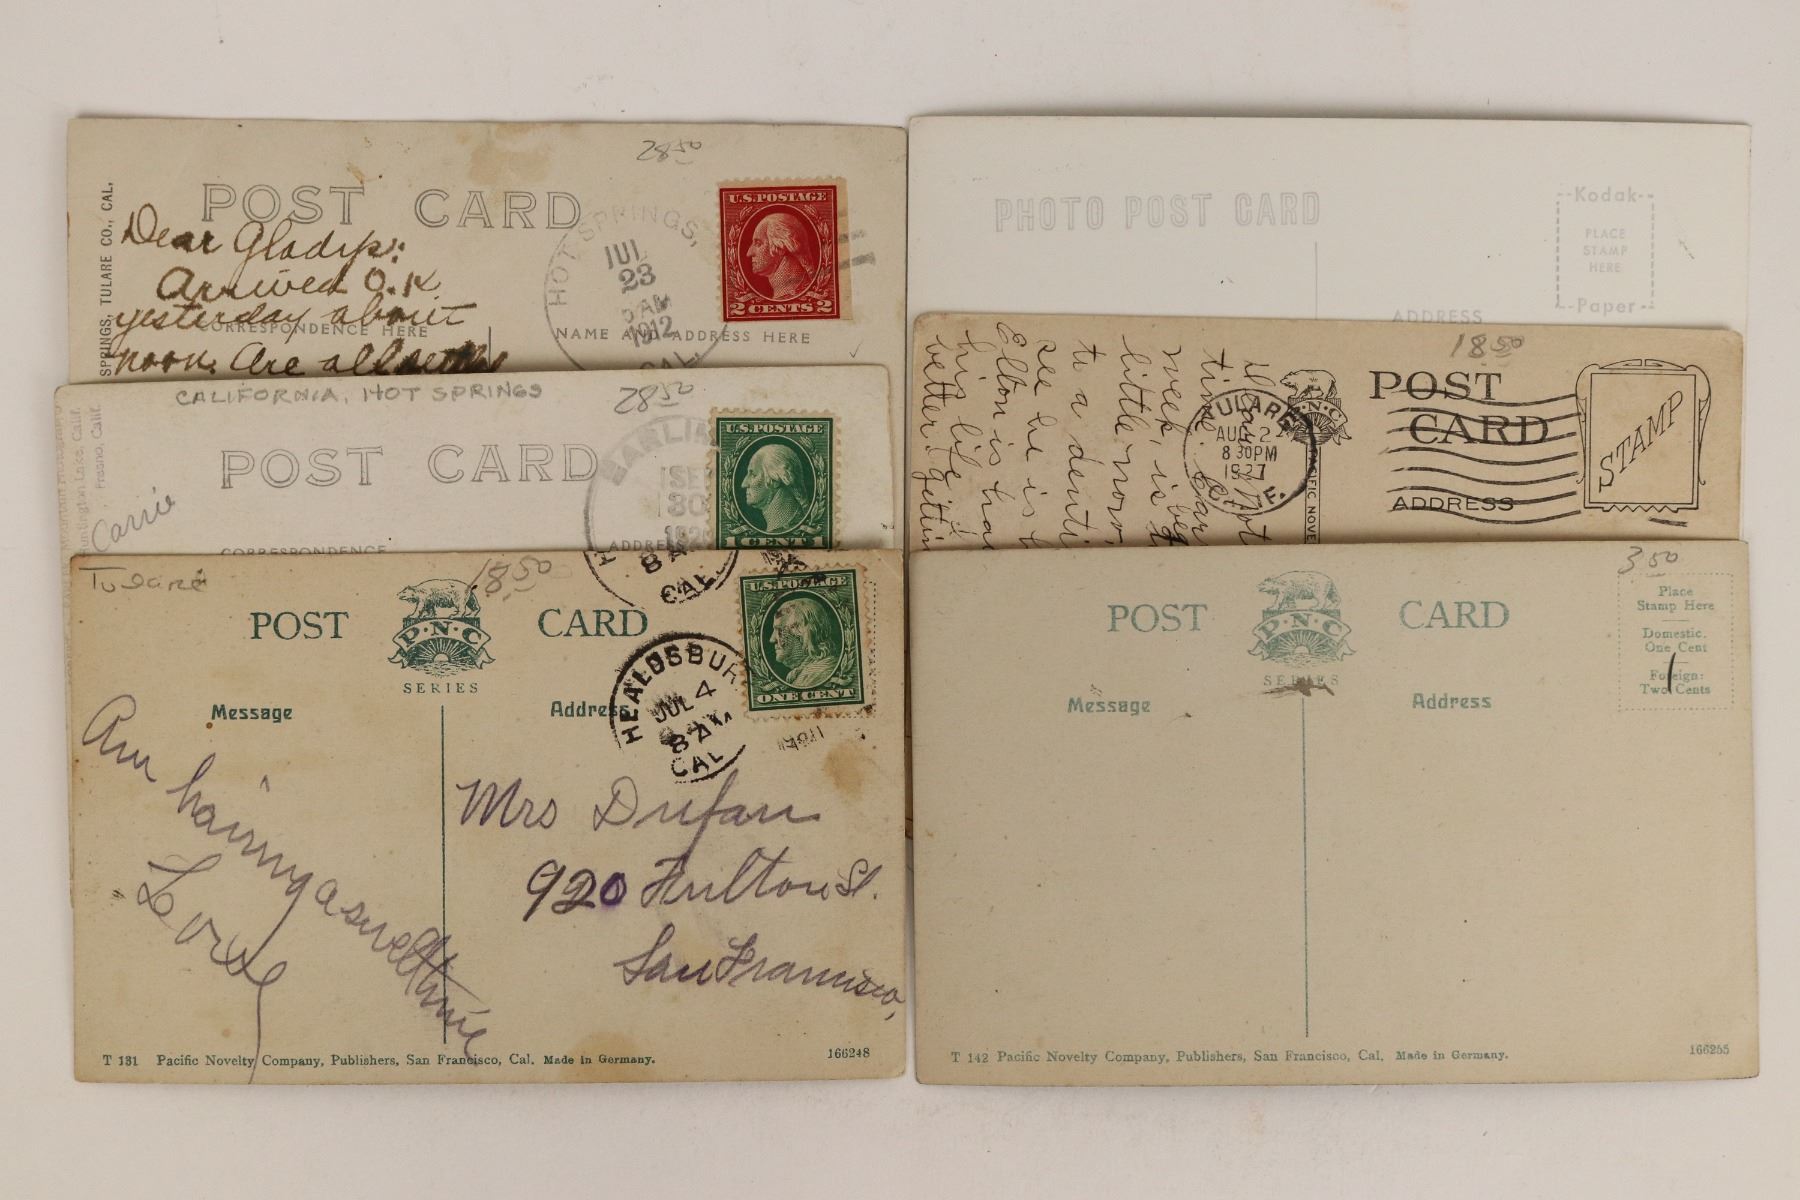 28 50
POST CARD
SPRINGS, TULARE CO., CAL.
Dear Gladys:
Arrived O.K.
yesterday about
CORRESPONDENCE HERE
noon. Are all
HOT SPRINGS,
JUL
23
AM
1912
CAL.
U.S. POSTAGE
2 CENTS 2
NAME AND ADDRESS HERE
CALIFORNIA, HOT SPRINGS
28 50
POST CARD
Huntington Lake, Calif.
Fresno, Calif.
Carrie
CORRESPONDENCE
ADDRESS
SEP
30
8 A
CAL.
U.S. POSTAGE
1 CENT 1
Tulare
18.50
POST CARD
P·N·C
SERIES
Message
Address
HEALDSBUR
JUL 4
8 AM
CAL
U.S. POSTAGE
ONE CENT
Am having a swell time
Love
Mrs Dufau
920 Fulton St.
San Francisco,
T 131 Pacific Novelty Company, Publishers, San Francisco, Cal. Made in Germany.
166248
PHOTO POST CARD
Kodak
PLACE
STAMP
HERE
Paper
ADDRESS
18 50
POST
CARD
ADDRESS
STAMP
P·N·C
PACIFIC NOVE
TULARE
AUG 2
8 30PM
1927
CALIF.
time.
week, is
little
to a denti
see he is
Elton is
his life
better
3 50
POST CARD
P·N·C
SERIES
Message
Address
Place
Stamp Here
Domestic.
One Cent
Foreign:
Two Cents
T 142 Pacific Novelty Company, Publishers, San Francisco, Cal. Made in Germany.
166255